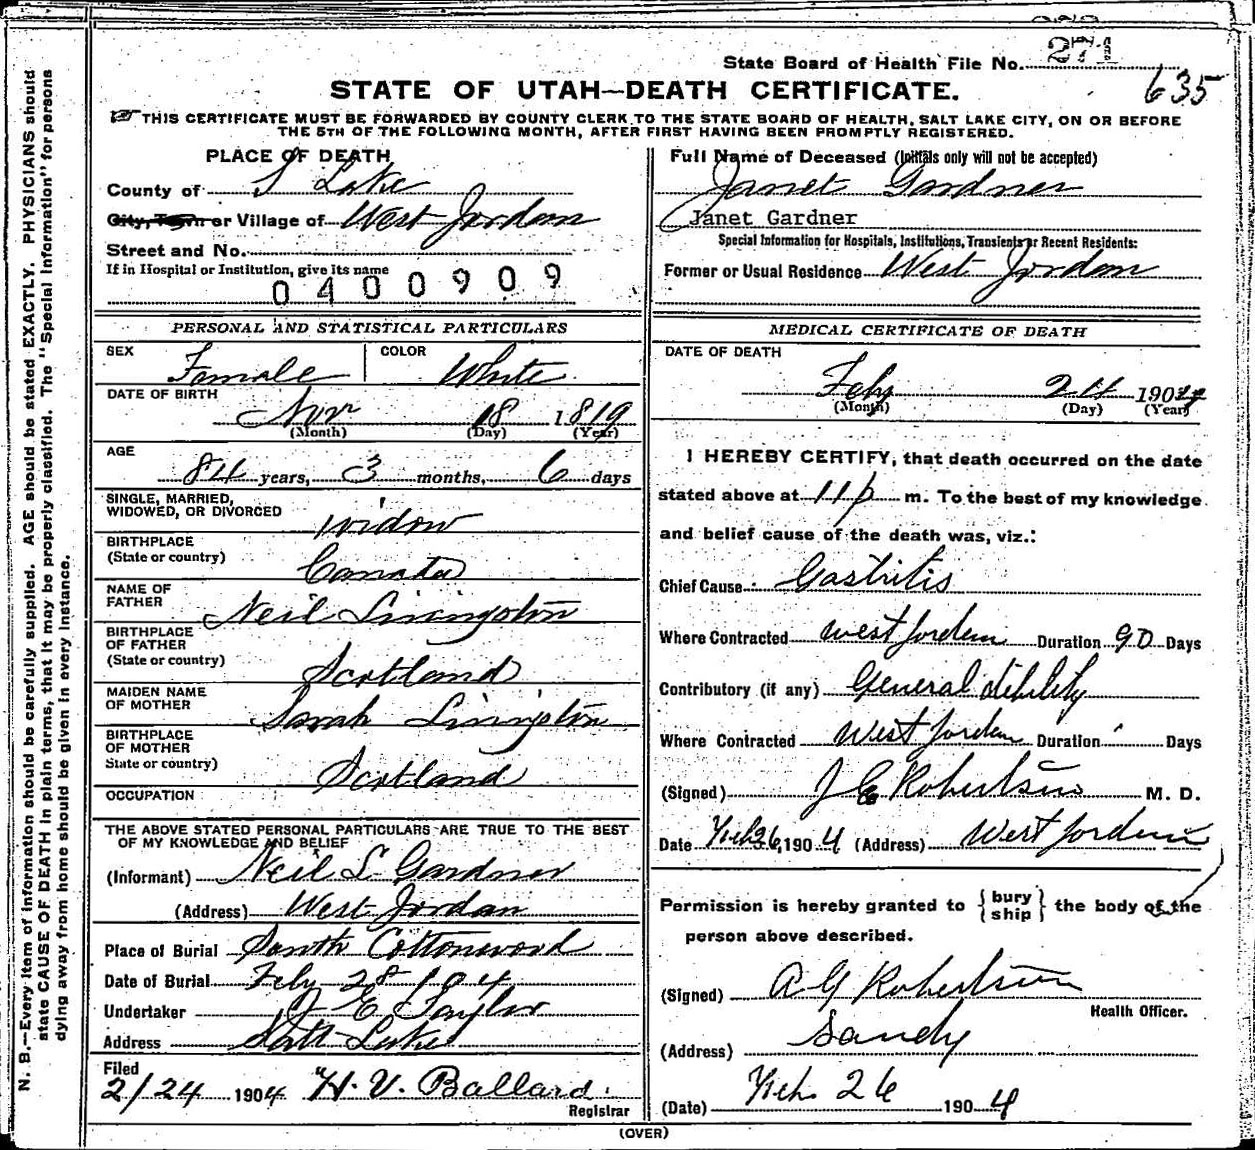 State Board of Health File No. 271
635
STATE OF UTAH—DEATH CERTIFICATE.
THIS CERTIFICATE MUST BE FORWARDED BY COUNTY CLERK TO THE STATE BOARD OF HEALTH, SALT LAKE CITY, ON OR BEFORE
THE 5TH OF THE FOLLOWING MONTH, AFTER FIRST HAVING BEEN PROMPTLY REGISTERED.
PLACE OF DEATH
County of S Lake
City, Town or Village of West Jordan
Street and No.
If in Hospital or Institution, give its name
0400909
Full Name of Deceased (Initials only will not be accepted)
Janet Gardner
Janet Gardner
Special Information for Hospitals, Institutions, Transients or Recent Residents:
Former or Usual Residence West Jordan
PERSONAL AND STATISTICAL PARTICULARS
SEX Female COLOR White
DATE OF BIRTH
Nov 18 1819
(Month) (Day) (Year)
AGE
84 years, 3 months, 6 days
SINGLE, MARRIED,
WIDOWED, OR DIVORCED widow
BIRTHPLACE
(State or country) Canada
NAME OF
FATHER Neil Livingston
BIRTHPLACE
OF FATHER
(State or country) Scotland
MAIDEN NAME
OF MOTHER Sarah Livingston
BIRTHPLACE
OF MOTHER
State or country) Scotland
OCCUPATION
THE ABOVE STATED PERSONAL PARTICULARS ARE TRUE TO THE BEST
OF MY KNOWLEDGE AND BELIEF
(Informant) Neil L Gardner
(Address) West Jordan
Place of Burial South Cottonwood
Date of Burial Feby 28 1904
Undertaker J E Taylor
Address Salt Lake
Filed
2/24 1904 H. V. Ballard.
Registrar
MEDICAL CERTIFICATE OF DEATH
DATE OF DEATH
Feby 24 1904
(Month) (Day) (Year)
I HEREBY CERTIFY, that death occurred on the date
stated above at 11 p m. To the best of my knowledge
and belief cause of the death was, viz.:
Chief Cause: Gastritis
Where Contracted West Jordan Duration 90 Days
Contributory (if any) General debility
Where Contracted West Jordan Duration Days
(Signed) J E Robertson M. D.
Date Feb 26, 1904 (Address) West Jordan
Permission is hereby granted to {bury
ship} the body of the
person above described.
(Signed) A G Robertson
Health Officer.
(Address) Sandy
(Date) Feb 26 1904
(OVER)
N. B.—Every item of information should be carefully supplied. AGE should be stated EXACTLY. PHYSICIANS should
state CAUSE OF DEATH in plain terms, that it may be properly classified. The "Special Information" for persons
dying away from home should be given in every instance.